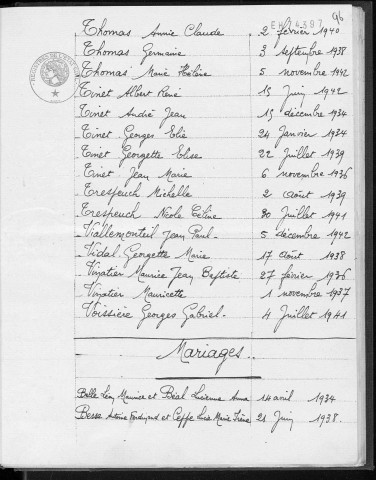 96
Thomas Annie Claude 2 février 1940
Thomas Germaine 3 Septembre 1938
Thomas Marie Hélène 5 novembre 1942
Tinet Albert René 15 Juin 1942
Tinet André Jean 15 décembre 1934
Tinet Georges Elie 24 Janvier 1934
Tinet Georgette Elise 22 Juillet 1939
Tinet Jean Marie 6 novembre 1936
Trespeuch Michelle 2 août 1939
Trespeuch Nicole Céline 30 Juillet 1941
Viallemonteil Jean Paul 5 décembre 1942
Vidal Georgette Marie 17 août 1938
Vinatier Maurice Jean Baptiste 27 février 1936
Vinatier Mauricette 1 novembre 1937
Voissière Georges Gabriel 4 Juillet 1941
Mariages
Belle Léon Maurice et Béal Lucienne Anna 14 avril 1934
Besse Antoine Ferdinand et Ceppe Marie Irène 21 Juin 1938